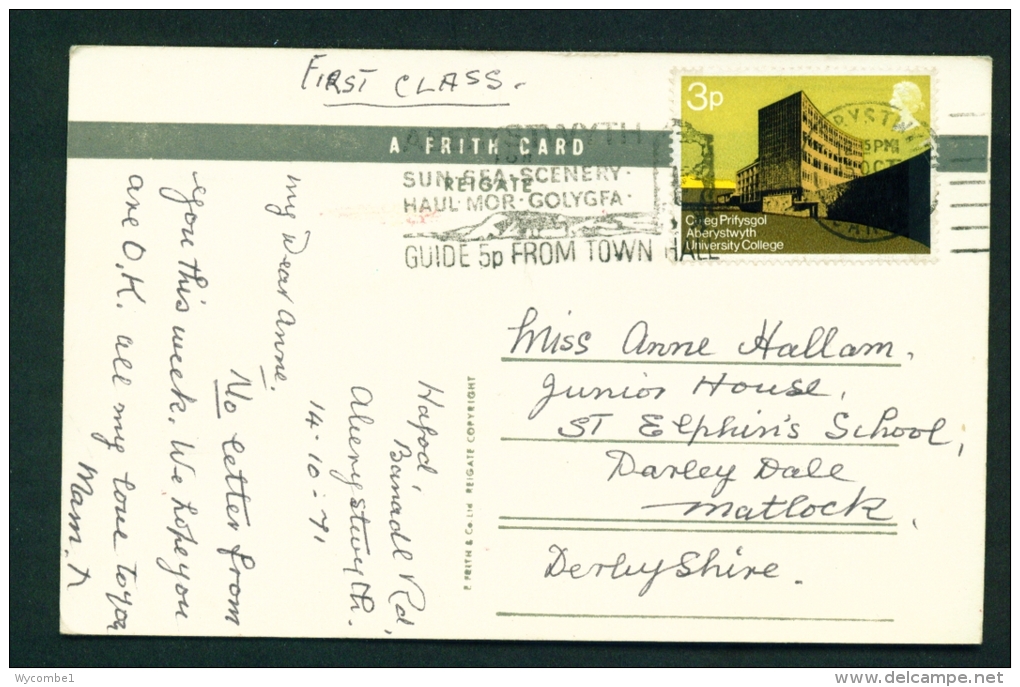 FIRST CLASS.
A FRITH CARD
REIGATE
ABERYSTWYTH
FOR
SUN·SEA·SCENERY·
HAUL·MOR·GOLYGFA·
GUIDE 5p FROM TOWN HALL
3p
Coleg Prifysgol
Aberystwyth
University College
5PM
OCT
Miss Anne Hallam.
Junior House.
ST Elphin's School,
Darley Dale
Matlock,
Derbyshire.
F. FRITH & Co. Ltd REIGATE COPYRIGHT
Hafod,
Banadl Rd,
Aberystwyth.
14-10-71
My Dear Anne.
No letter from
you this week. We hope you
are O.K. all my love to you
Mam. X
Wycombe1
www.delcampe.net